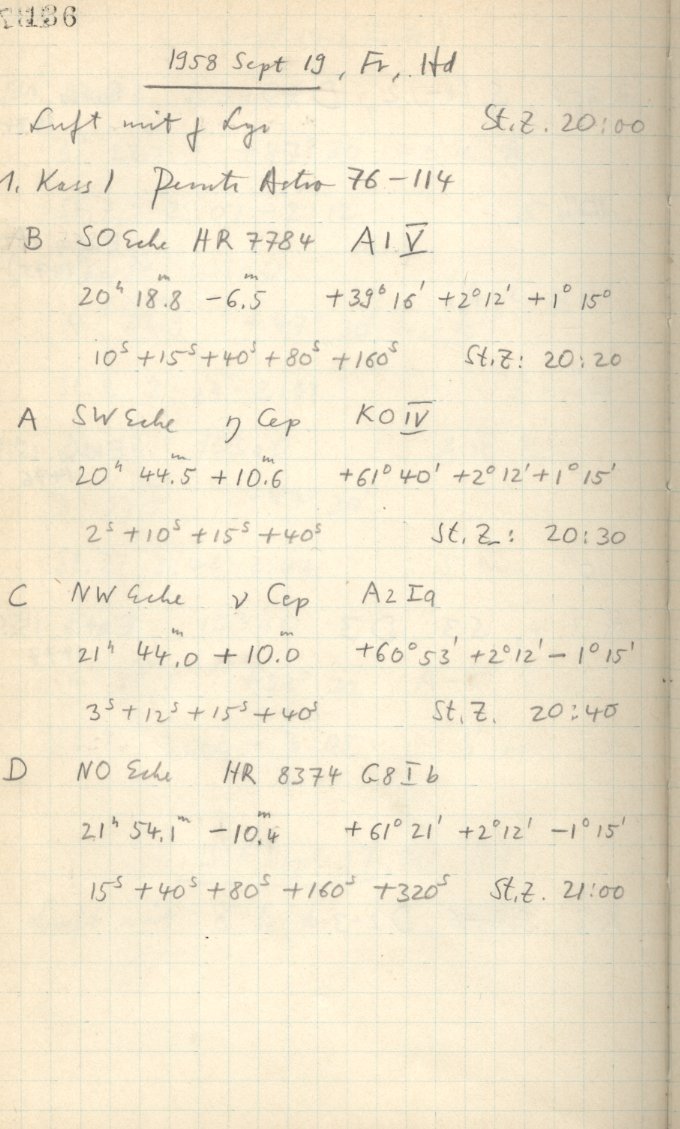 1958 Sept 19, Fr, Hd
Luft mit γ Lyr St.Z. 20:00
1. Kass I Astro 76-114
B SO Ecke HR 7784 A1 V
20ʰ 18.8ᵐ -6.5ᵐ +39° 16' +2° 12' +1° 15°
10ˢ +15ˢ +40ˢ +80ˢ +160ˢ St.Z: 20:20
A SW Ecke η Cep K0 IV
20ʰ 44.5ᵐ +10.6ᵐ +61° 40' +2° 12' +1° 15'
2ˢ +10ˢ +15ˢ +40ˢ St.Z.: 20:30
C NW Ecke ν Cep A2 Ia
21ʰ 44.0ᵐ +10.0ᵐ +60° 53' +2° 12' -1° 15'
3ˢ +12ˢ +15ˢ +40ˢ St.Z. 20:40
D NO Ecke HR 8374 G8 I b
21ʰ 54.1ᵐ -10.4ᵐ +61° 21' +2° 12' -1° 15'
15ˢ +40ˢ +80ˢ +160ˢ +320ˢ St.Z. 21:00